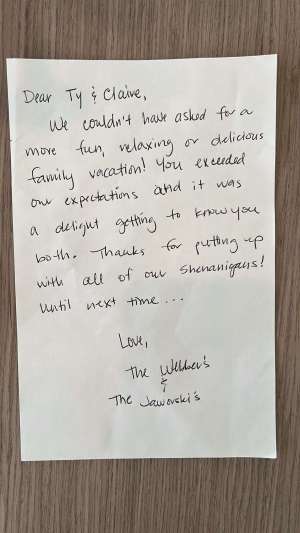 Dear Ty & Claire,
We couldn't have asked for a
more fun, relaxing or delicious
family vacation! You exceeded
our expectations and it was
a delight getting to know you
both. Thanks for putting up
with all of our shenanigans!
Until next time...
Love,
The Webber's
&
The Jaworski's